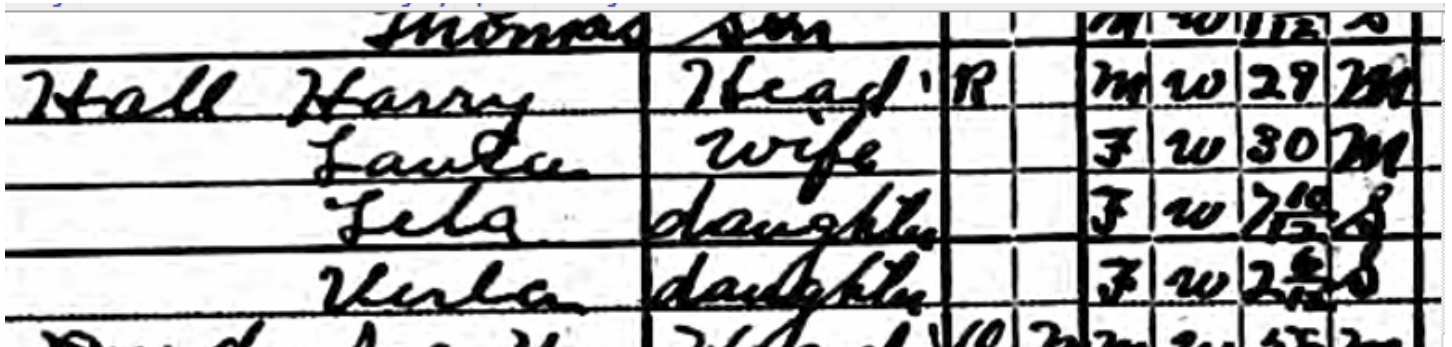 Thomas son M W S
Hall Harry Head R M W 29 M
Laura wife F W 30 M
Lela daughter F W 7 10/12 S
Verla daughter F W 2 6/12 S